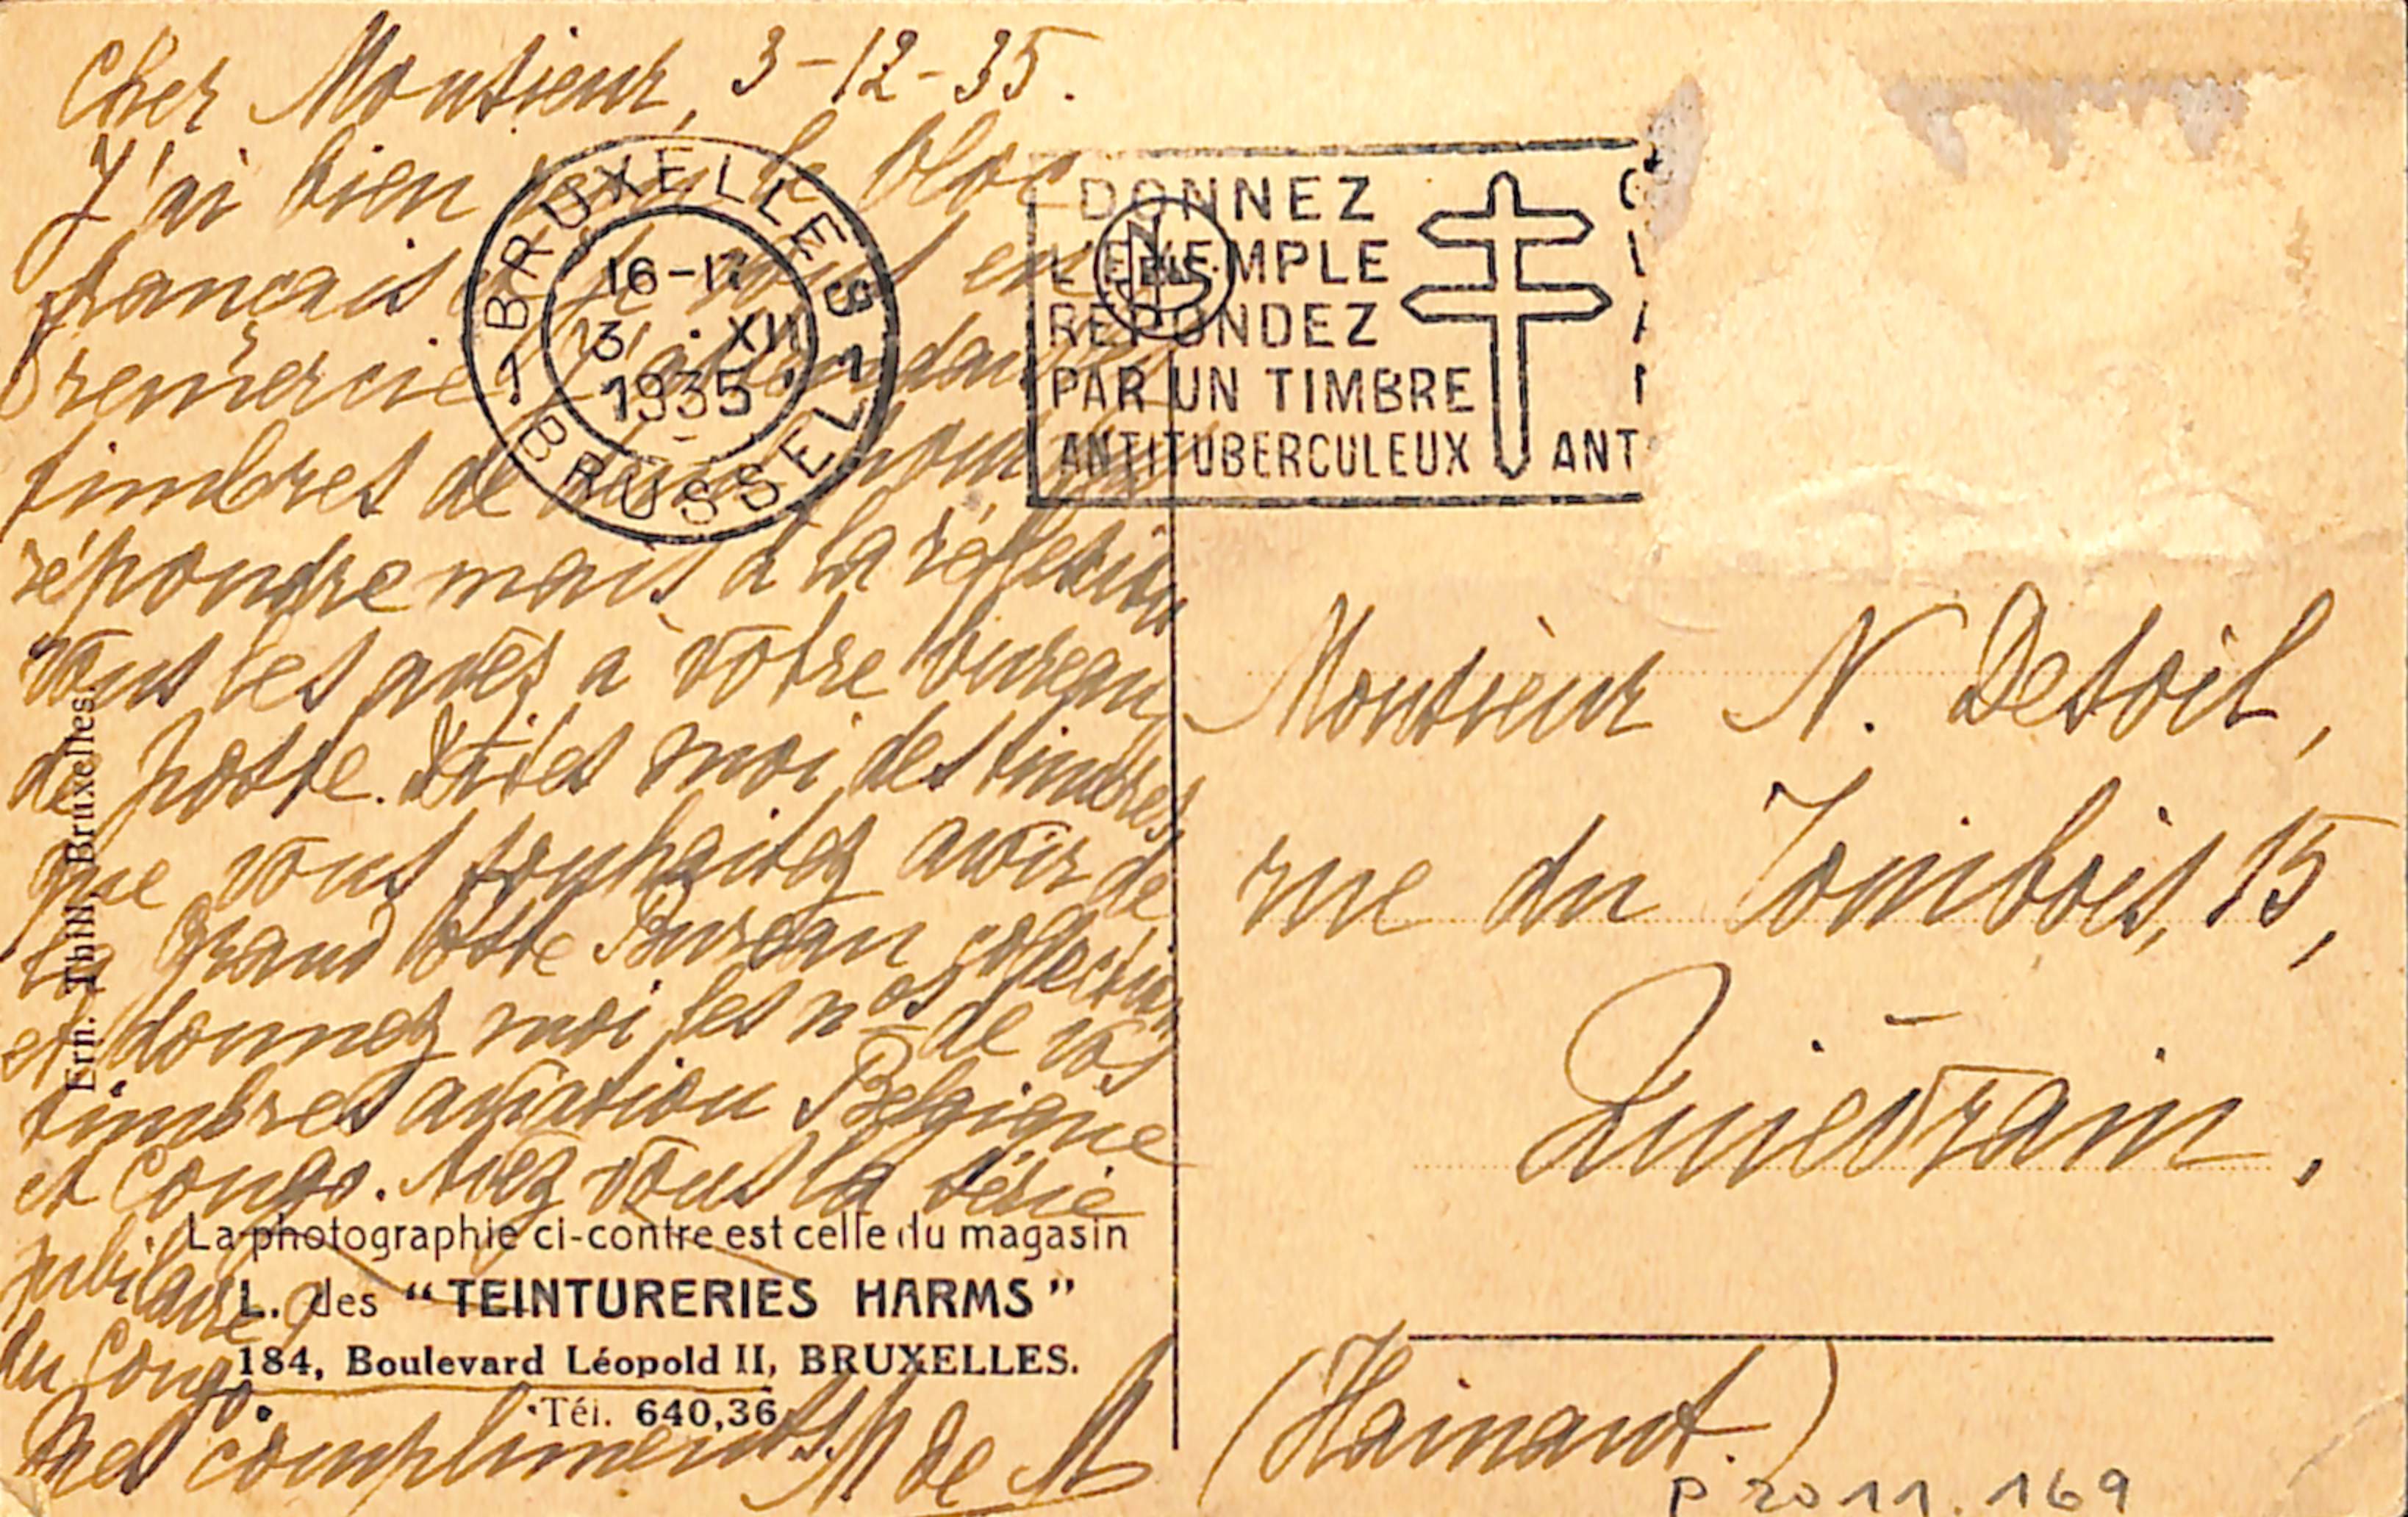 Cher Monsieur, 3-12-35.
J'ai bien reçu le bloc
français et je vous en
remercie. J'attendais
timbres de pour
répondre mais à la réflexion
vous les avez à votre bureau
de poste. Dites moi des timbres
que vous souhaitez avoir de
la Grand Poste Bureau collection
et donnez moi les nos de vos
timbres aviation Belgique
et Congo. Avez vous la série
jubilaire
du Congo.
Mes compliments M de M
BRUXELLES
16-17
3 · XII
1935
1 1
BRUSSEL
DONNEZ
L'EXEMPLE
REPONDEZ
PAR UN TIMBRE
ANTITUBERCULEUX ANT
Monsieur N. Desoil,
rue du Tombois, 15,
Quiévrain.
(Hainaut.)
P 2011.169
Ern. Thill, Bruxelles.
La photographie ci-contre est celle du magasin
L. des "TEINTURERIES HARMS"
184, Boulevard Léopold II, BRUXELLES.
Tél. 640,36